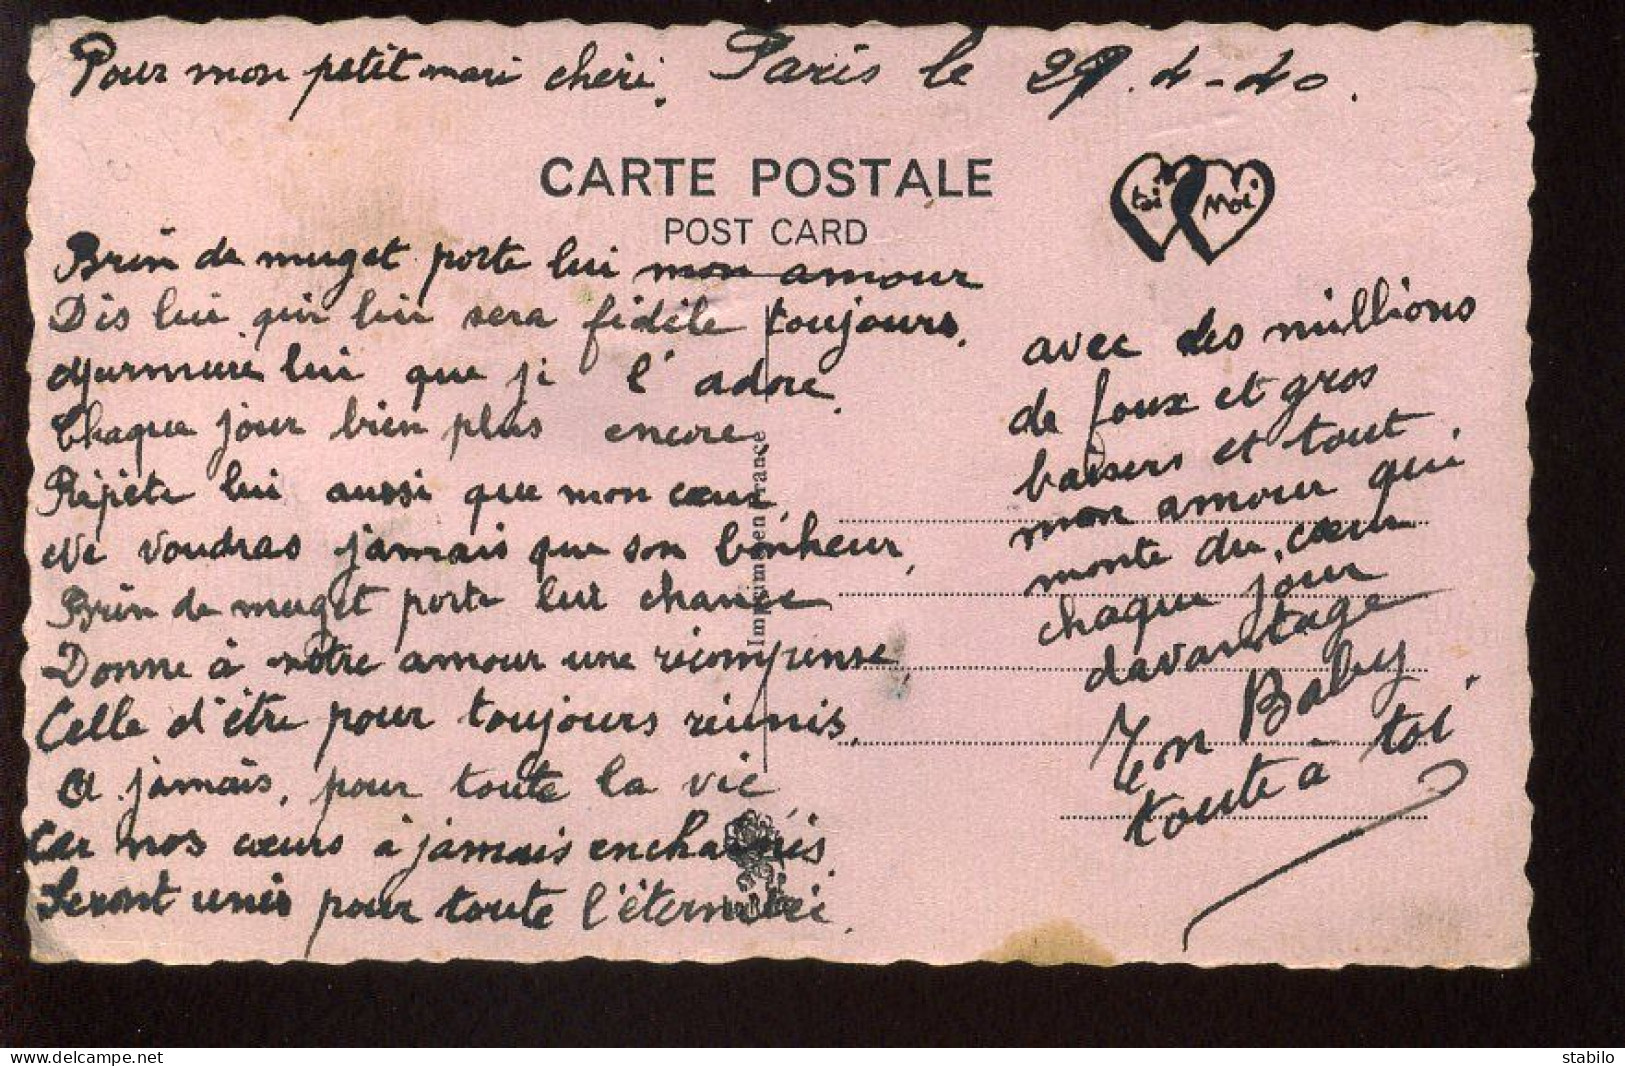 Pour mon petit mari chéri. Paris le 29.4-40.
CARTE POSTALE
POST CARD
toi Moi
Brin de muget porte lui mon amour
Dis lui qu'il lui sera fidèle toujours.
Murmure lui que je l'adore.
Chaque jour bien plus encore
Répète lui aussi que mon cœur
Ne voudras jamais que son bonheur,
Brin de muget porte lui chance
Donne à nôtre amour une récompense,
Celle d'être pour toujours réunis.
A jamais, pour toute la vie,
Car nos cœurs à jamais enchainés
Seront unis pour toute l'éternitée.
Imprimé en France
avec des millions
de foux et gros
baisers et tout
mon amour qui
monte du cœur
chaque jour
davantage
Ton Baby
toute à toi.
stabilo